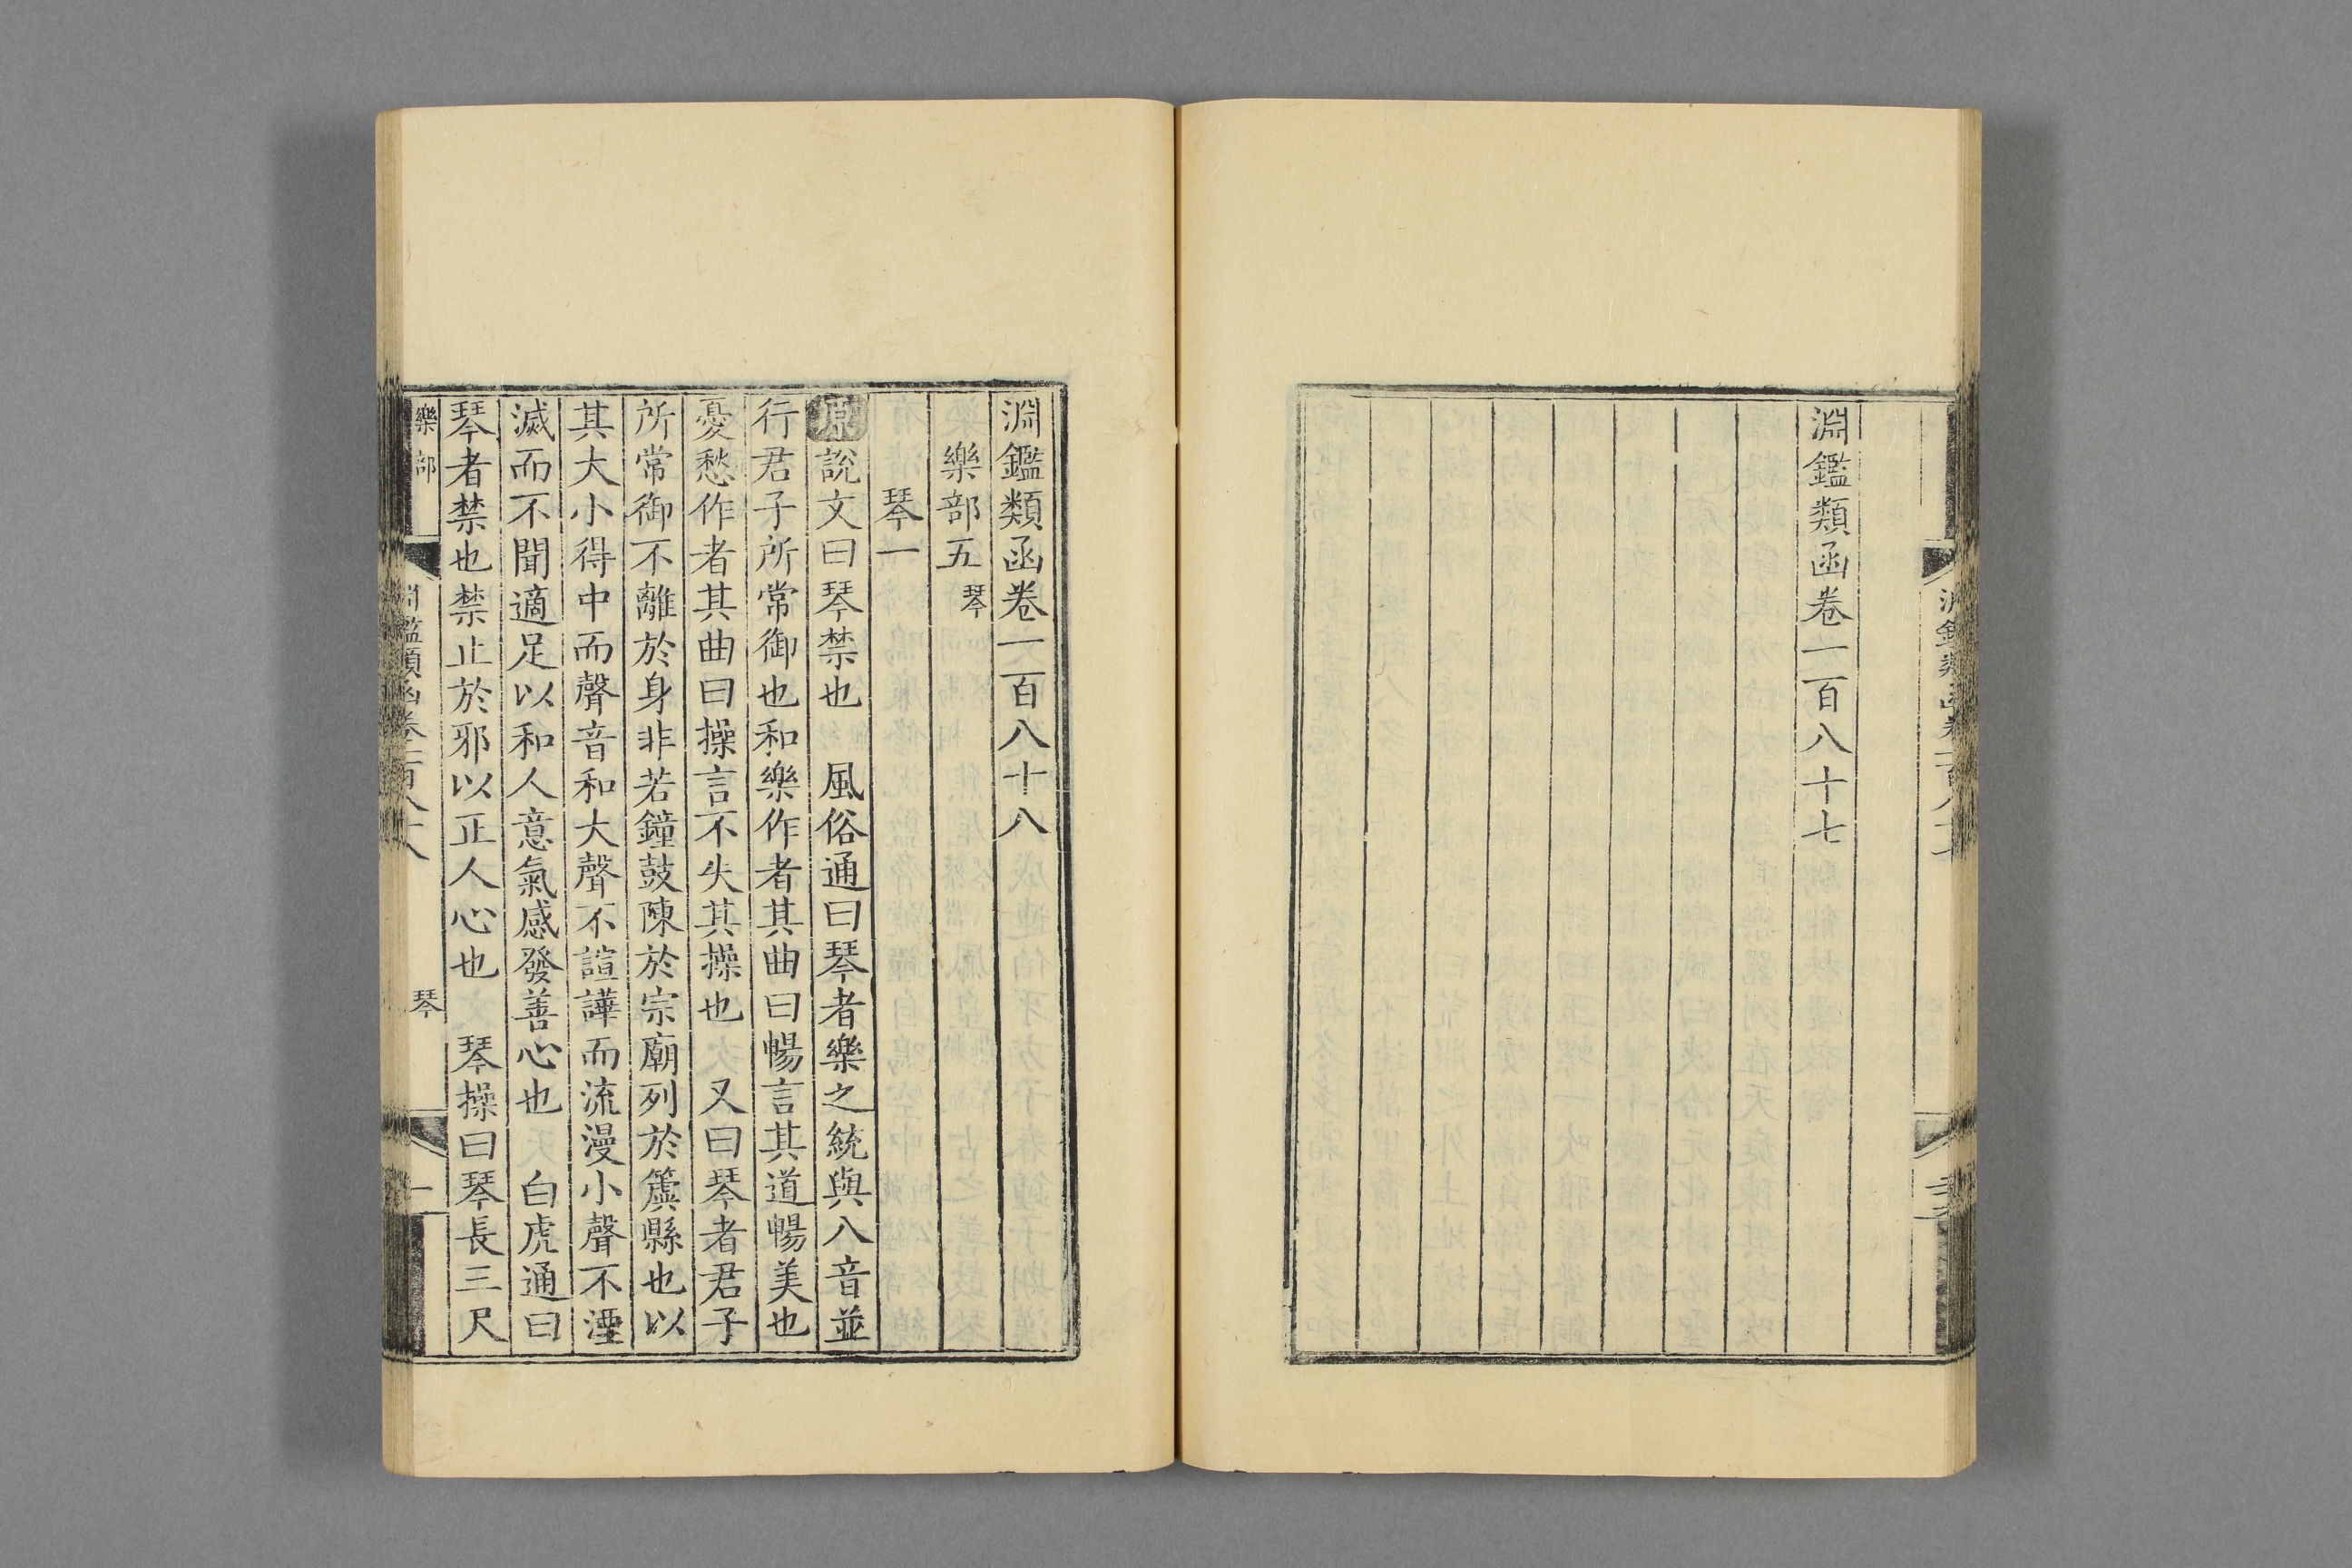 淵鑑類函卷一百八十七
淵鑑類函卷一百八十八
樂部五 琴
琴一
原說文曰琴禁也　風俗通曰琴者樂之統與八音並
行君子所常御也和樂作者其曲曰暢言其道暢美也
憂愁作者其曲曰操言不失其操也　又曰琴者君子
所常御不離於身非若鐘鼓陳於宗廟列於簴縣也以
其大小得中而聲音和大聲不諠譁而流漫小聲不湮
滅而不聞適足以和人意氣感發善心也　白虎通曰
琴者禁也禁止於邪以正人心也　琴操曰琴長三尺
樂部
淵鑑類函卷一百八十八
琴
一